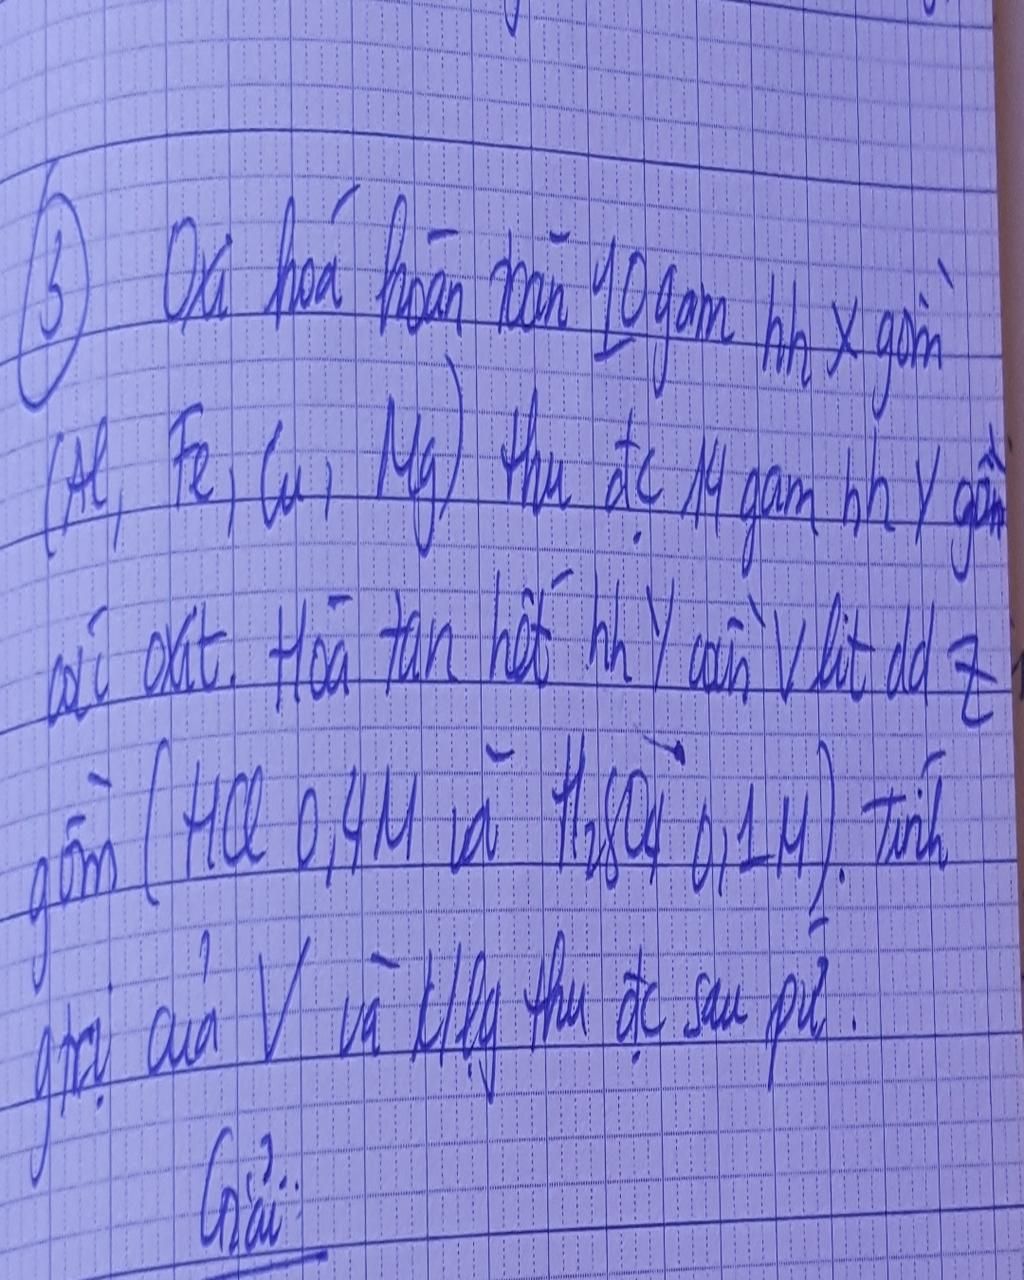 ③ Oxi hoá hoàn toàn 10 gam hh X gồm
(Al, Fe, Cu, Mg) thu đc 14 gam hh Y gồm
các oxit. Hoà tan hết hh Y cần V lít dd Z
gồm (HCl 0,4M và H₂SO₄ 0,1M). Tính
gtrị của V và klg thu đc sau pứ.
Giải: